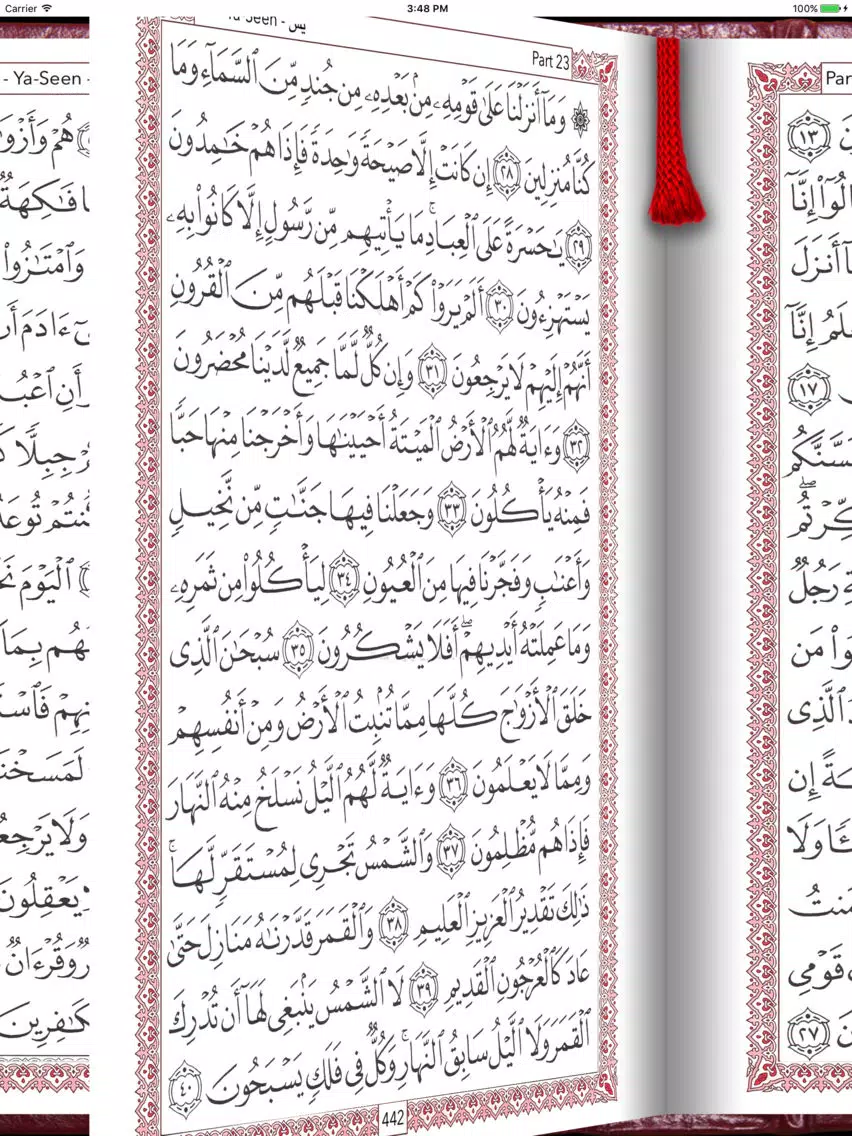 Carrier 3:48 PM 100%
Ya-Seen - يس
Part 23
۞ وَمَآ أَنزَلْنَا عَلَىٰ قَوْمِهِۦ مِنۢ بَعْدِهِۦ مِن جُندٍ مِّنَ ٱلسَّمَآءِ وَمَا
كُنَّا مُنزِلِينَ ٢٨ إِن كَانَتْ إِلَّا صَيْحَةً وَٰحِدَةً فَإِذَا هُمْ خَـٰمِدُونَ
٢٩ يَـٰحَسْرَةً عَلَى ٱلْعِبَادِ ۚ مَا يَأْتِيهِم مِّن رَّسُولٍ إِلَّا كَانُوا۟ بِهِۦ
يَسْتَهْزِءُونَ ٣٠ أَلَمْ يَرَوْا۟ كَمْ أَهْلَكْنَا قَبْلَهُم مِّنَ ٱلْقُرُونِ
أَنَّهُمْ إِلَيْهِمْ لَا يَرْجِعُونَ ٣١ وَإِن كُلٌّ لَّمَّا جَمِيعٌ لَّدَيْنَا مُحْضَرُونَ
٣٢ وَءَايَةٌ لَّهُمُ ٱلْأَرْضُ ٱلْمَيْتَةُ أَحْيَيْنَـٰهَا وَأَخْرَجْنَا مِنْهَا حَبًّا
فَمِنْهُ يَأْكُلُونَ ٣٣ وَجَعَلْنَا فِيهَا جَنَّـٰتٍ مِّن نَّخِيلٍ
وَأَعْنَـٰبٍ وَفَجَّرْنَا فِيهَا مِنَ ٱلْعُيُونِ ٣٤ لِيَأْكُلُوا۟ مِن ثَمَرِهِۦ
وَمَا عَمِلَتْهُ أَيْدِيهِمْ ۖ أَفَلَا يَشْكُرُونَ ٣٥ سُبْحَـٰنَ ٱلَّذِى
خَلَقَ ٱلْأَزْوَٰجَ كُلَّهَا مِمَّا تُنۢبِتُ ٱلْأَرْضُ وَمِنْ أَنفُسِهِمْ
وَمِمَّا لَا يَعْلَمُونَ ٣٦ وَءَايَةٌ لَّهُمُ ٱلَّيْلُ نَسْلَخُ مِنْهُ ٱلنَّهَارَ
فَإِذَا هُم مُّظْلِمُونَ ٣٧ وَٱلشَّمْسُ تَجْرِى لِمُسْتَقَرٍّ لَّهَا ۚ
ذَٰلِكَ تَقْدِيرُ ٱلْعَزِيزِ ٱلْعَلِيمِ ٣٨ وَٱلْقَمَرَ قَدَّرْنَـٰهُ مَنَازِلَ حَتَّىٰ
عَادَ كَٱلْعُرْجُونِ ٱلْقَدِيمِ ٣٩ لَا ٱلشَّمْسُ يَنۢبَغِى لَهَآ أَن تُدْرِكَ
ٱلْقَمَرَ وَلَا ٱلَّيْلُ سَابِقُ ٱلنَّهَارِ ۚ وَكُلٌّ فِى فَلَكٍ يَسْبَحُونَ ٤٠
442
- Ya-Seen -
هُمْ وَأَزْوَ
فَـٰكِهَةٌ
وَٱمْتَـٰزُوا۟
ءَادَمَ أَن
أَنِ ٱعْبُ
جِبِلًّا كَ
كُنتُمْ تُوعَد
ٱلْيَوْمَ نَخ
هُم بِمَا
فَٱسْتَ
لَمَسَخْنَـ
وَلَا يَرْجِعُو
يَعْقِلُونَ
وَقُرْءَانٌ
ٱلْكَـٰفِرِينَ
Par
١٣
إِنَّآ
أَنزَلَ
إِنَّآ
١٧
رَجُلٌ
مَن
ٱلَّذِى
إِن
وَلَا
قَوْمِى
٢٧